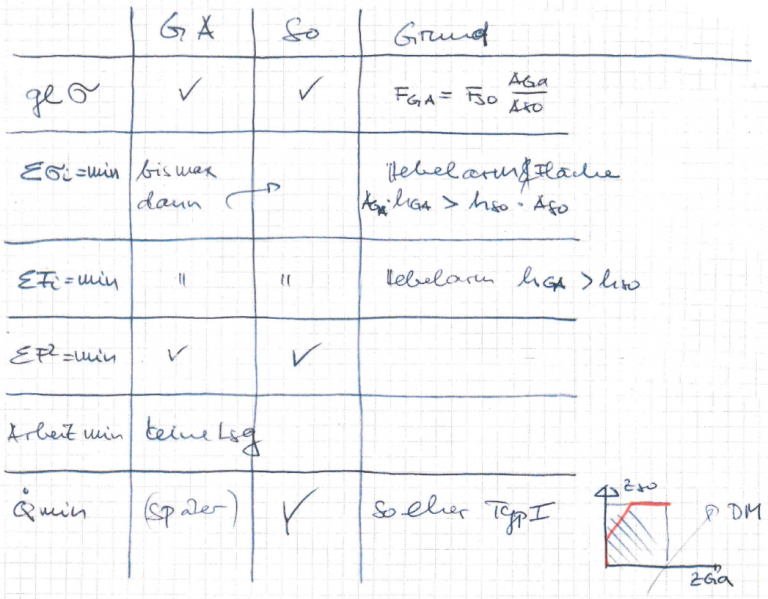 GA So Grund
gl σ ✓ ✓ F_GA = F_SO A_Ga/A_so
Σσi=min bis max Hebelarm & Fläche
dann A_GA·h_GA > h_so · A_SO
ΣFi=min " " Hebelarm h_GA > h_so
ΣF²=min ✓ ✓
Arbeit min keine Lsg
Q̇ min (später) ✓ So eher Typ I
z so
DM
z Ga